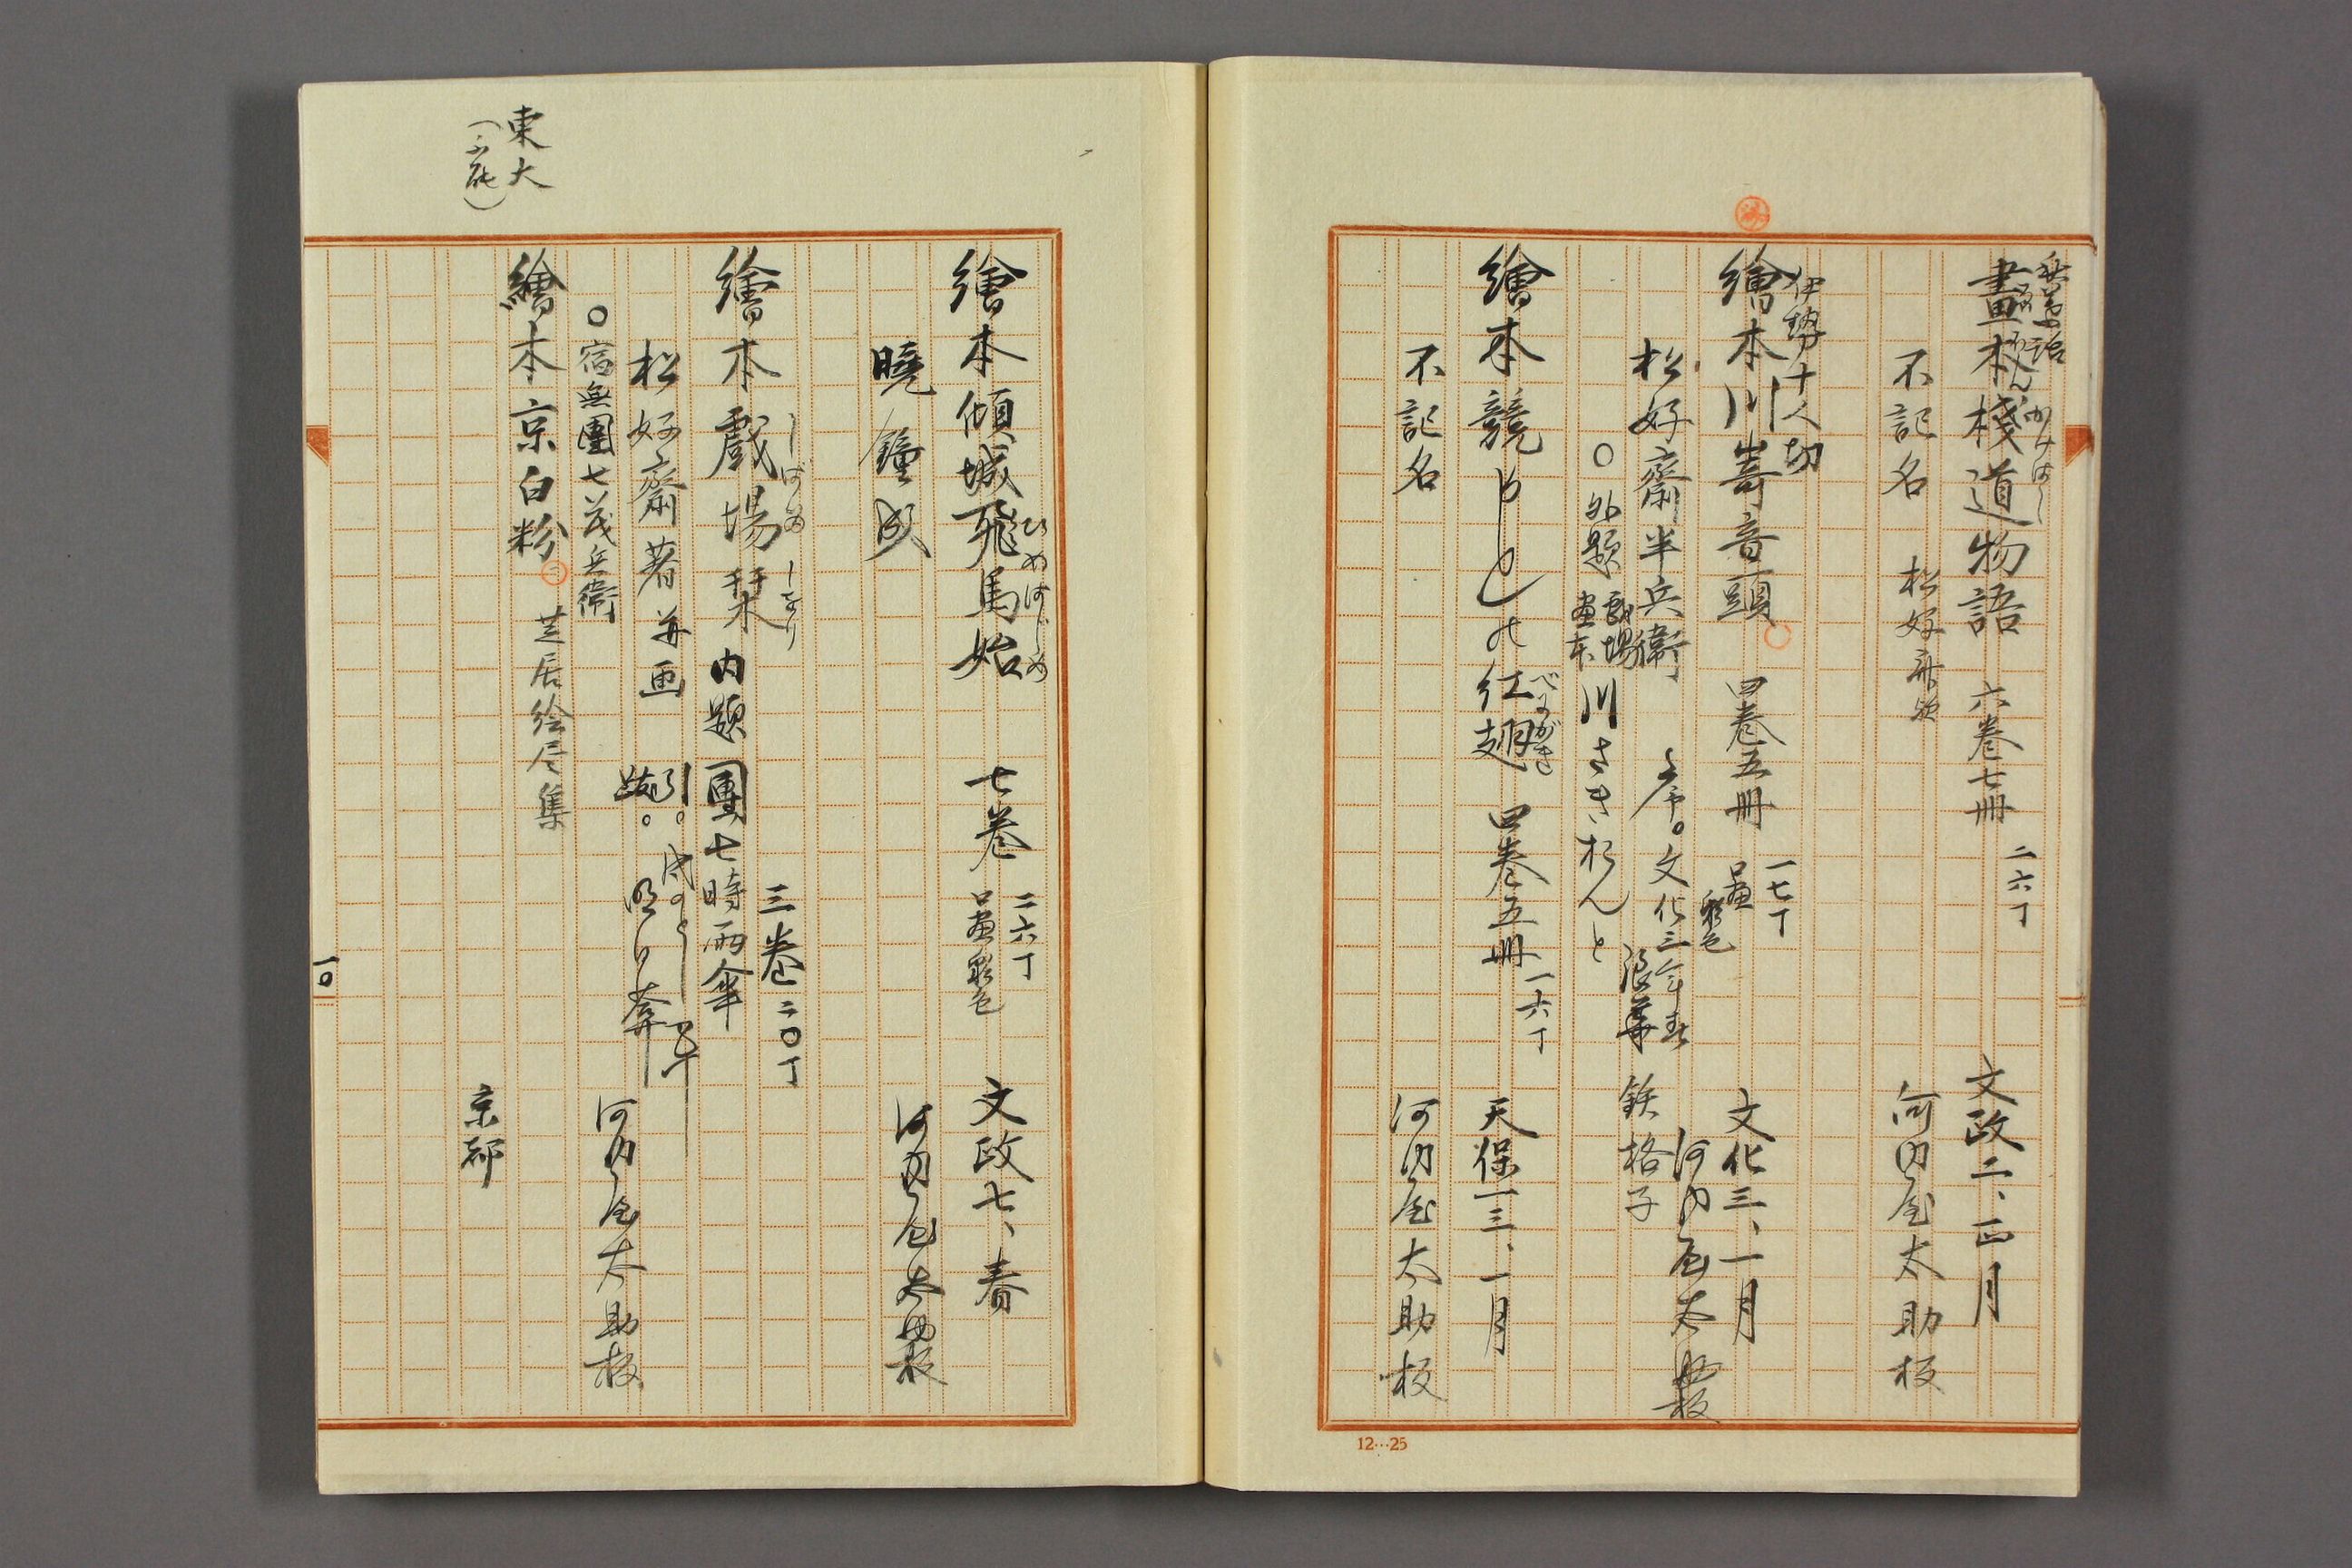 畫本棧道物語 六巻七冊 二六丁 文政二、正月
かけはし
不記名 松好斎欤 河内屋太助板
伊勢 十人切
繪本川嵜音頭 四巻五冊 一七丁 文化三、一月
彩色
松好齋半兵衛 序。文化三年春 浪華 鉄格子 河内屋太助板
○外題 戯場画本 川さきおんと
繪本競 紅翅 四巻五冊 一六丁 天保一三、一月
不記名 河内屋太助板
12…25
繪本傾城飛馬始 七巻 二六丁 彩色 文政七、春
ひめはじめ
曉鐘成 河内屋太助板
繪本戲場栞 内題 團七時雨傘 三巻 二〇丁
しばゐ しをり
松好齋著并画 引。 跋。 河内屋太助板
○宿無團七茂兵衛
繪本京白粉 芝居絵尽集
京都
東大
一〇